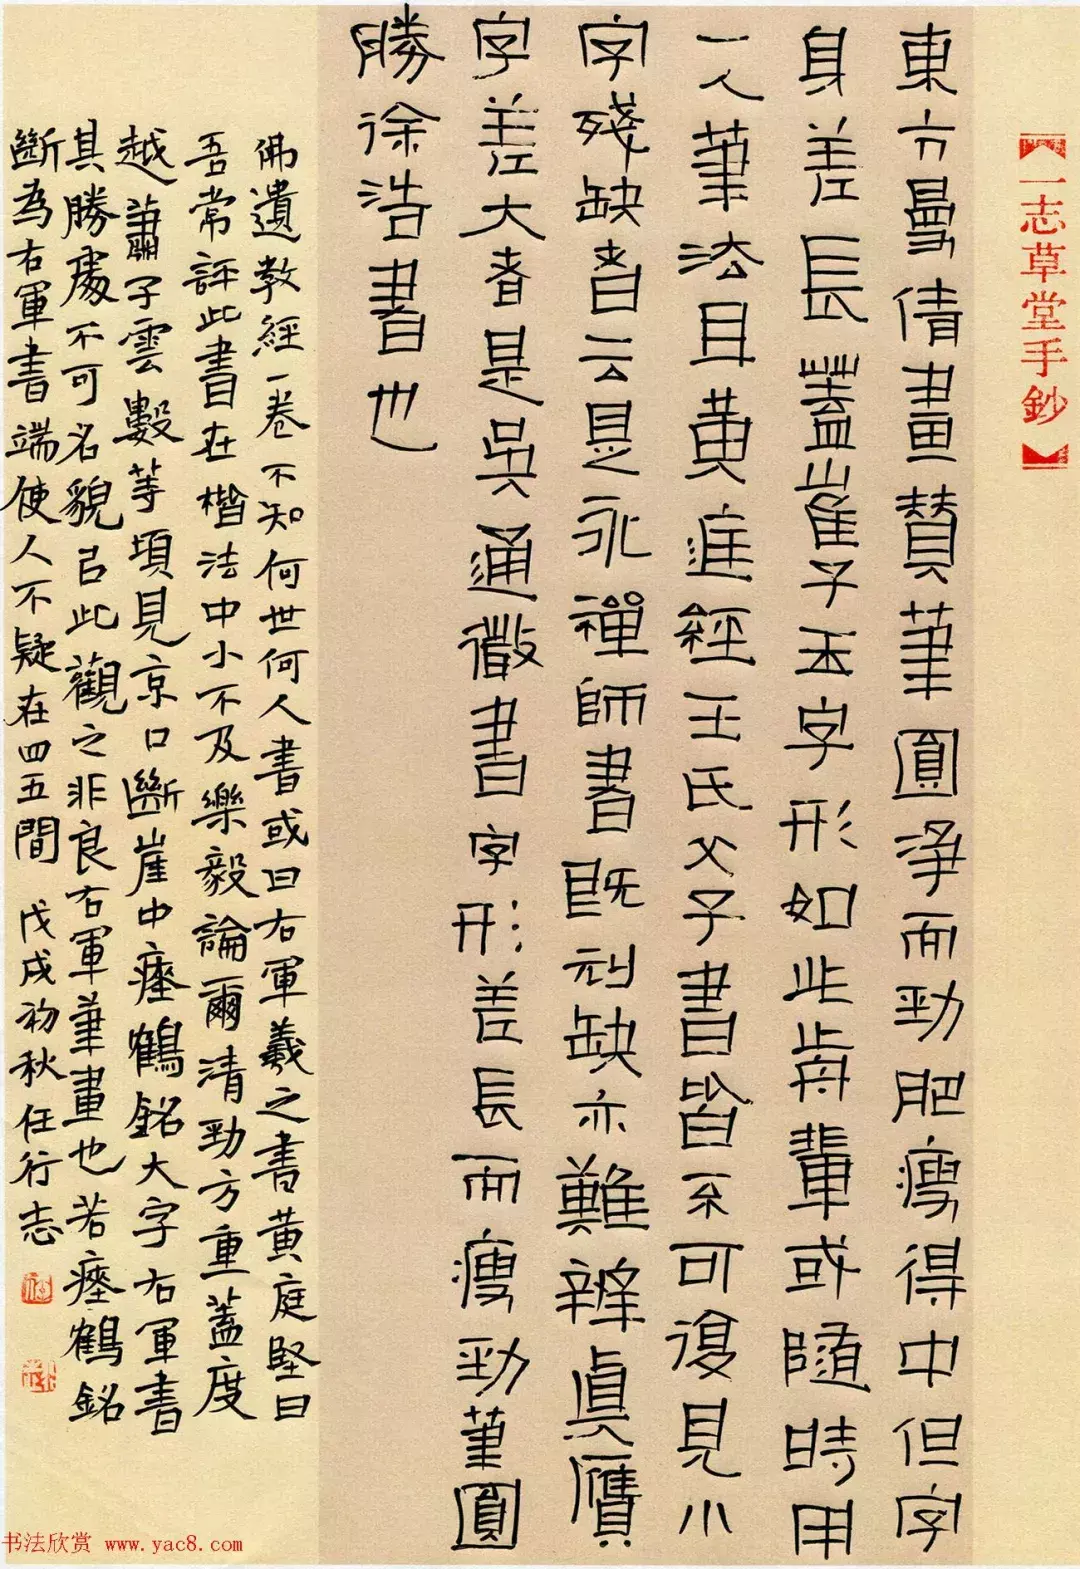 【一志草堂手鈔】
東方曼倩畫贊筆圓淨而勁肥瘦得中但字
身差長蓋崔子玉字形如此前輩或隨時用
一人筆法耳黃連經王氏父子書皆不可復見小
字殘缺者云是永禪師書既刓缺亦難辨真贗
字差大者是吳通微書字形差長而瘦勁筆圓
勝徐浩書也
佛遺教經一卷不知何世何人書或曰右軍羲之書黃庭堅曰
吾常評此書在楷法中小不及樂毅論爾清勁方重蓋度
越蕭子雲數等頃見京口斷崖中瘞鶴銘大字右軍書
其勝處不可名貌以此觀之非良右軍筆畫也若瘞鶴銘
斷為右軍書端使人不疑在四五間 戊戌初秋任行志
书法欣赏 www.yac8.com